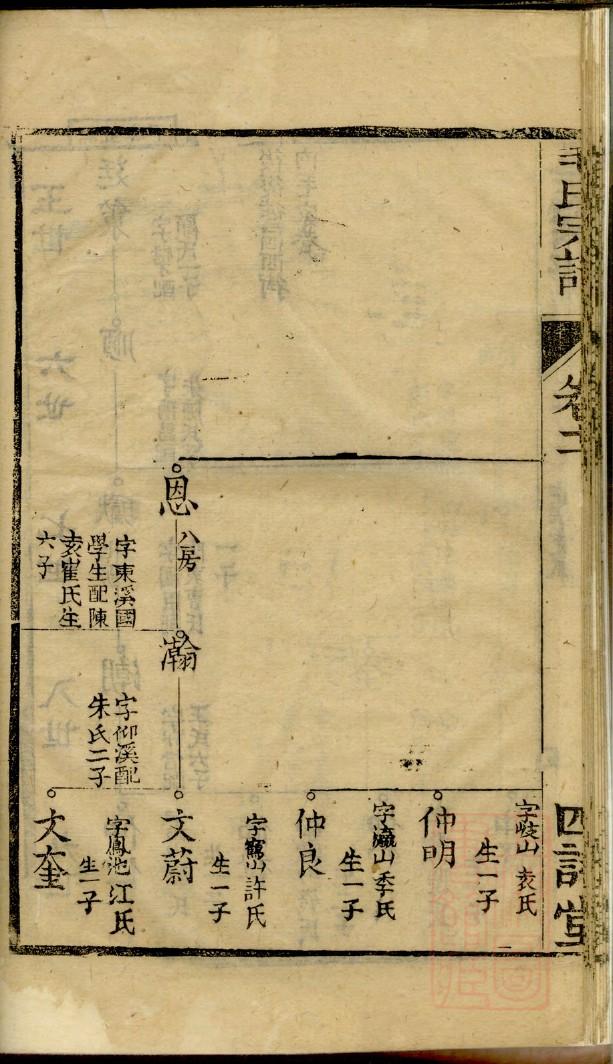 毛氏宗譜
卷二
四詩堂
恩
八房
字東溪國
學生配陳
袁崔氏生
六子
瀚
字仰溪配
朱氏二子
仲明
字岐山袁氏
生一子
仲良
字瀛山季氏
生一子
文蔚
山許氏
生一子
文奎
字鳳池江氏
生一子